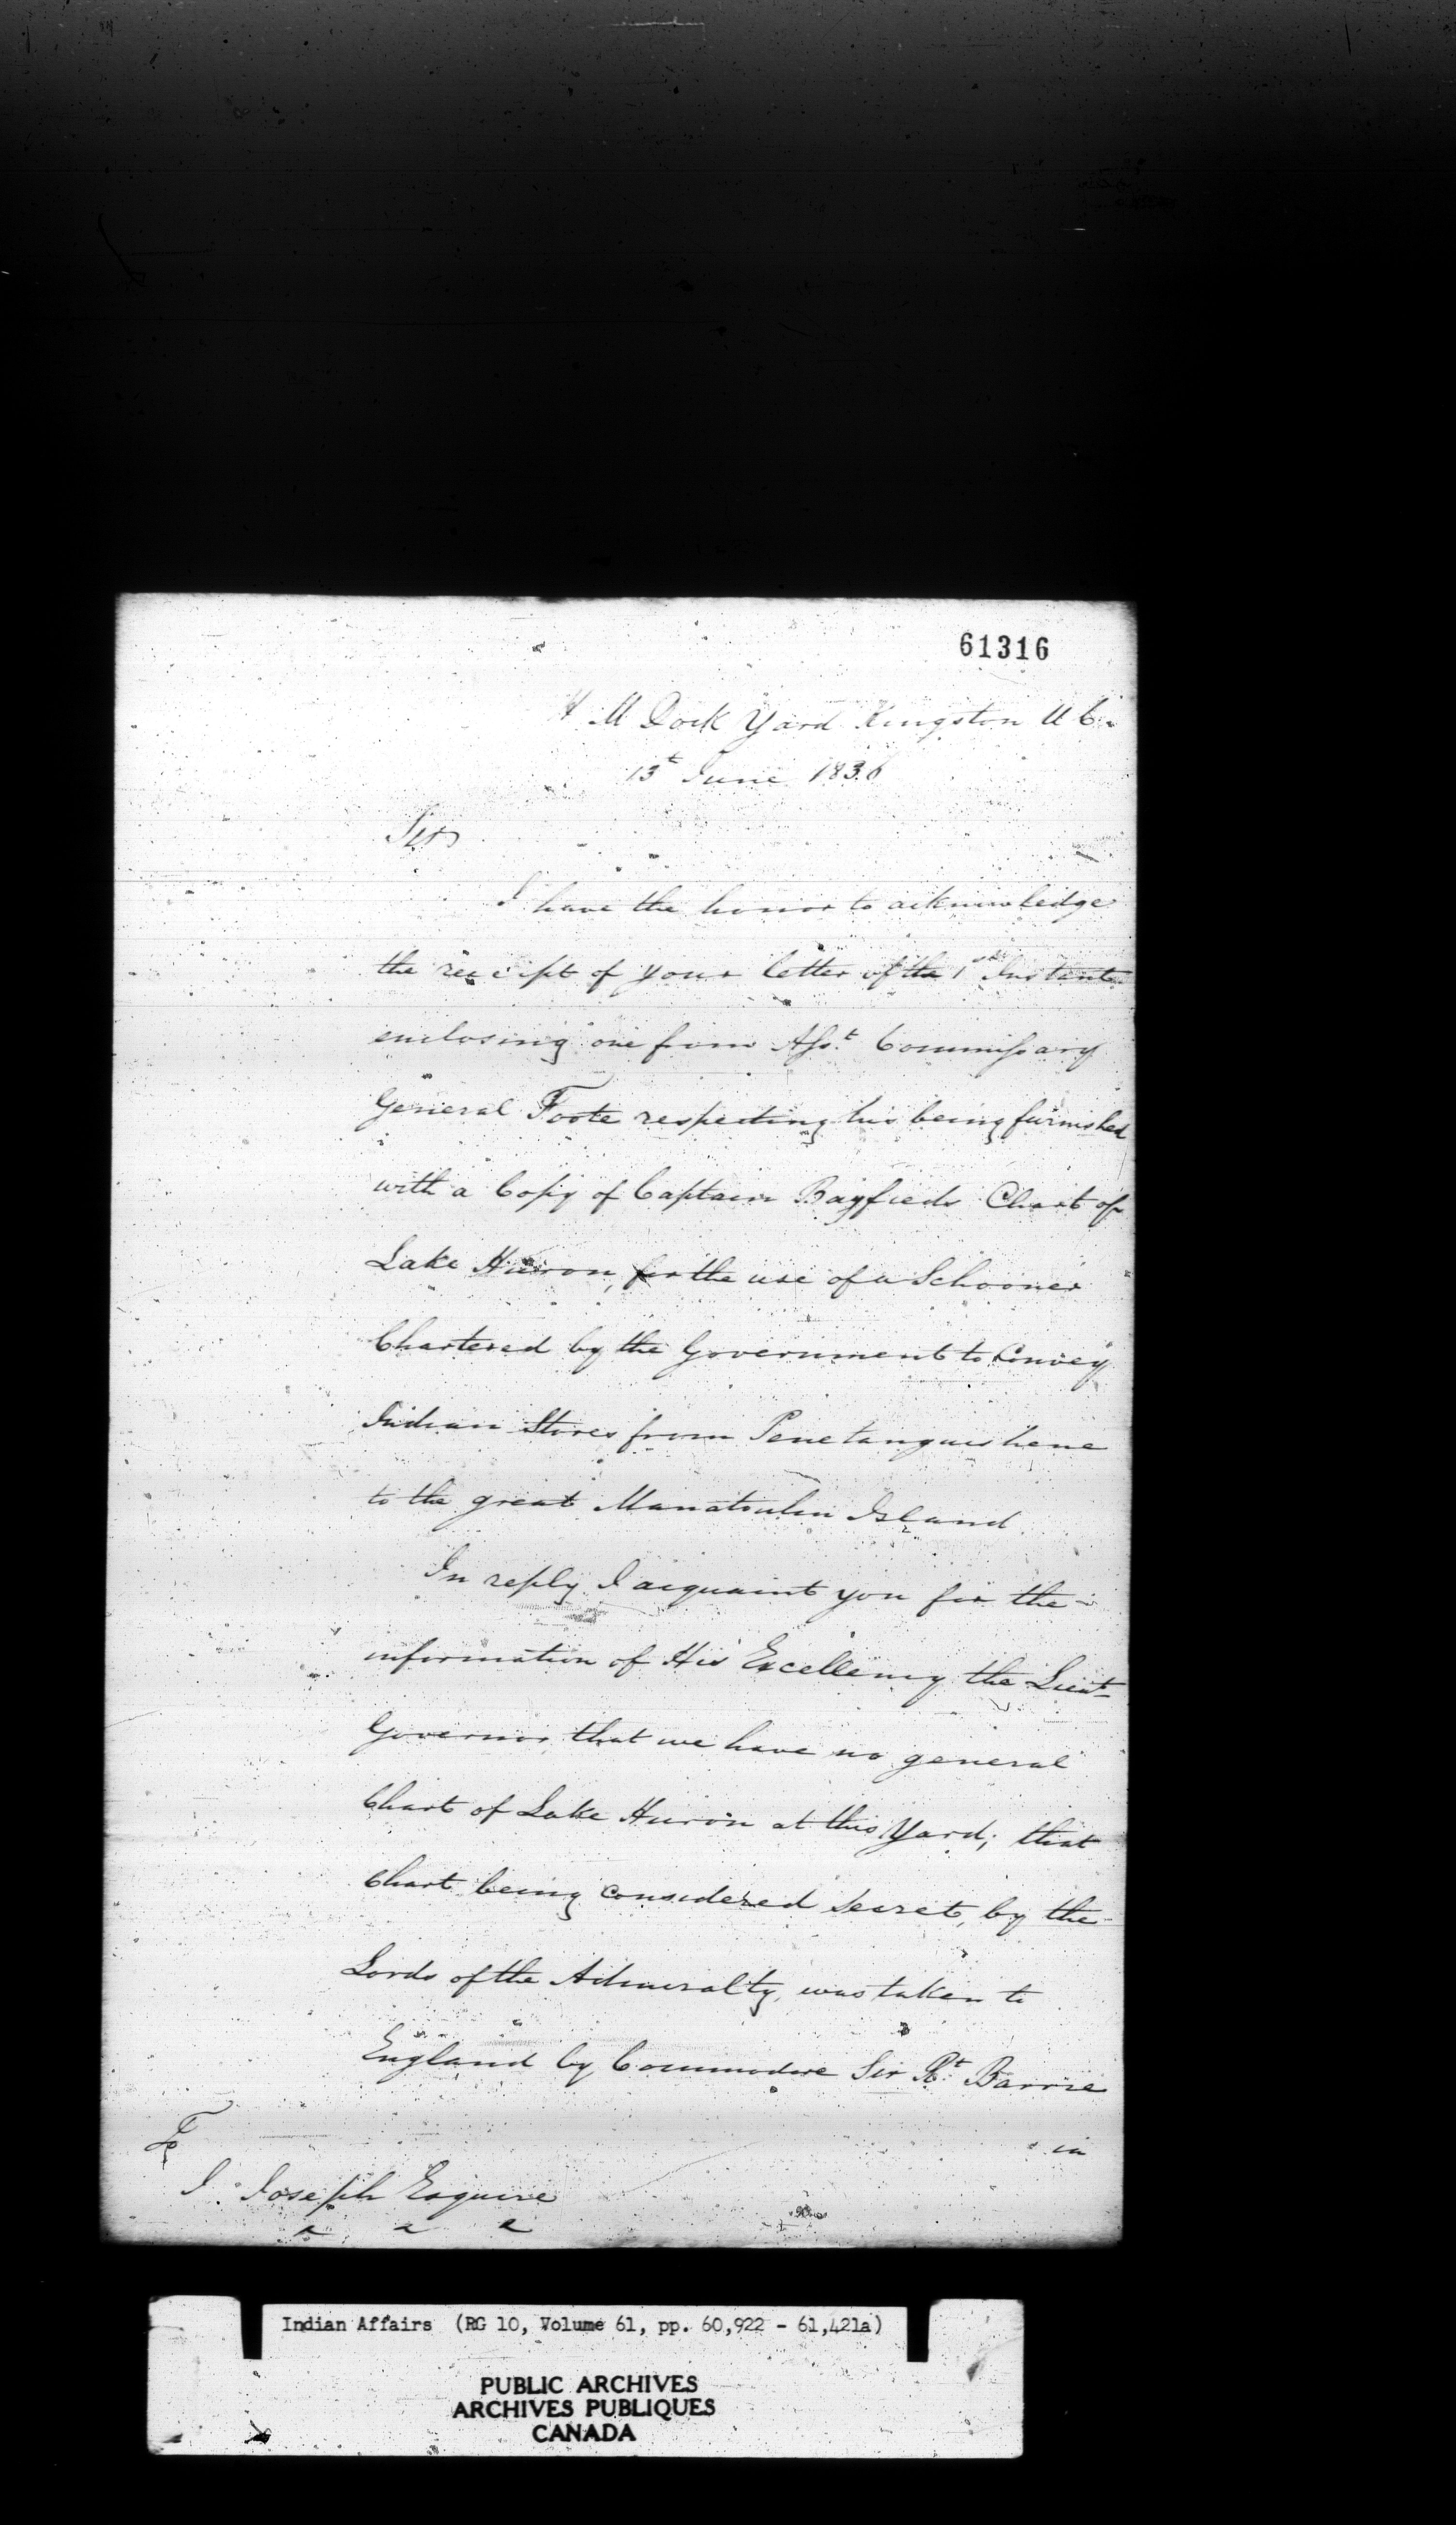 61316
H M Dock Yard Kingston U C.
13t June 1836
Sir
I have the honor to acknowledge
the receipt of your letter of the 1st Instant
enclosing one from Asst Commissary
General Foote respecting his being furnished
with a Copy of Captain Bayfieds Chart of
Lake Huron, for the use of a Schooner
Chartered by the Government to Convey
Indian Stores from Penetanguishene
to the great Manatoulin Island
In reply I acquaint you for the
information of His Excellency the Lieut
Governor, that we have no general
Chart of Lake Huron at this Yard; that
Chart being considered secret, by the
Lords of the Admiralty, was taken to
England by Commodore Sir Rt Barrie
in
To
J. Joseph Esquire
Indian Affairs (RG 10, Volume 61, pp. 60,922 - 61,421a)
PUBLIC ARCHIVES
ARCHIVES PUBLIQUES
CANADA